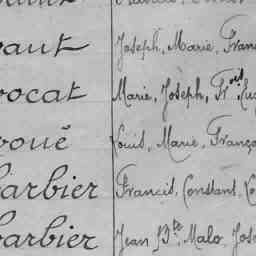 aut Joseph, Marie, Fran
ocat Marie, Joseph, Frois Eug
oué Louis, Marie, França
arbier Francis, Constant, Lo
arbier Jean Bte Malo, Jose